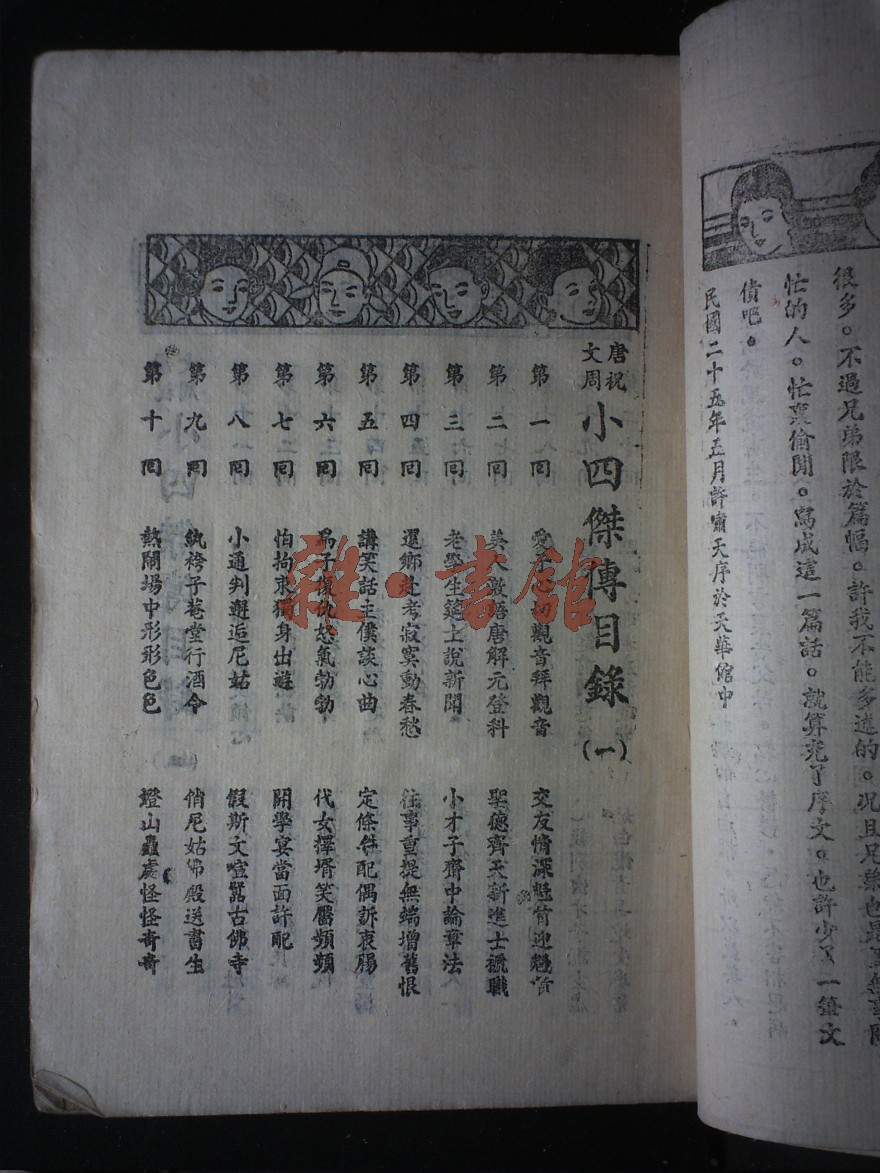 很多。不過兄弟限於篇幅。許我不能多述的。况且兄弟也是
忙的人。忙裏偷閒。寫成這一篇話。就算充了序文。也許少了一筆文
債吧。
民國二十五年五月許嘯天序於天華館中
唐祝
文周
小四傑傳目錄(一)
第一回 愛 觀音拜觀音 交友情深魁首迎魁首
第二回 美人 唐解元登科 聖德齊天新進士褫職
第三回 老學生筵上說新聞 小才子齋中論筆法
第四回 還鄉赴考寂寞動春愁 往事重提無端增舊恨
第五回 講笑話主僕談心曲 定條件配偶訴衷腸
第六回 爲子復仇怒氣勃勃 代女擇壻笑靨頻頻
第七回 怕拘束獨身出遊 開學宴當面許配
第八回 小通判邂逅尼姑 假斯文喧鬧古佛寺
第九回 紈袴子菴堂行酒令 俏尼姑佛殿送書生
第十回 熱鬧場中形形色色 燈山 處怪怪奇奇
雜·書館